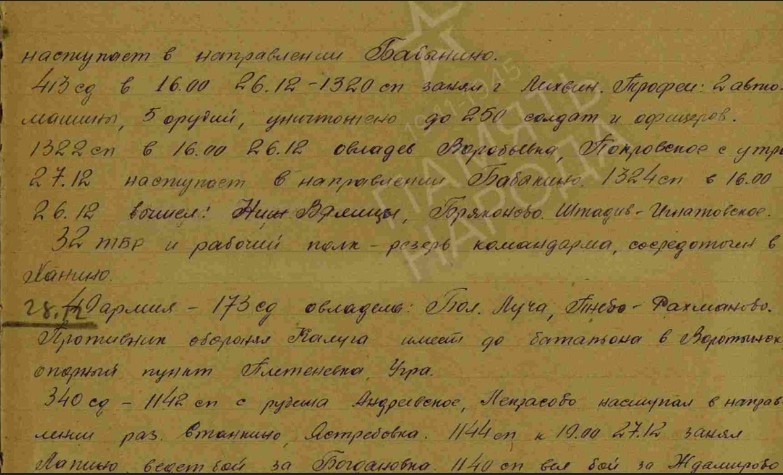 наступает в направлении Бабынино.
413 сд в 16.00 26.12 - 1320 сп занял г Лихвин. Трофеи: 2 авто
машины, 5 орудий, уничтожено до 250 солдат и офицеров.
1322 сп в 16.00 26.12 овладев Воробьевка, Покровское с утра
27.12 наступает в направлении Бабынино. 1324 сп в 16.00
26.12 вышел: Вялицы, Бряконово. Штадив - Игнатовское.
32 тбр и рабочий полк - резерв командарма, сосредоточен в
Ханино.
28.12 армия - 173 сд овладела: Бол. Луча, Рахманово.
Противник обороняя Калуга имеет до батальона в Воротынск
опорный пункт Плетеневка, Угра.
340 сд - 1142 сп с рубежа Андреевское, наступал в направ
лении раз. Станкино, Ястребовка. 1144 сп к 19.00 27.12 занял
Лапино, ведет бой за Богдановка. 1140 сп вел бой за Ждамирово
1941-1945
ПАМЯТЬ
НАРОДА